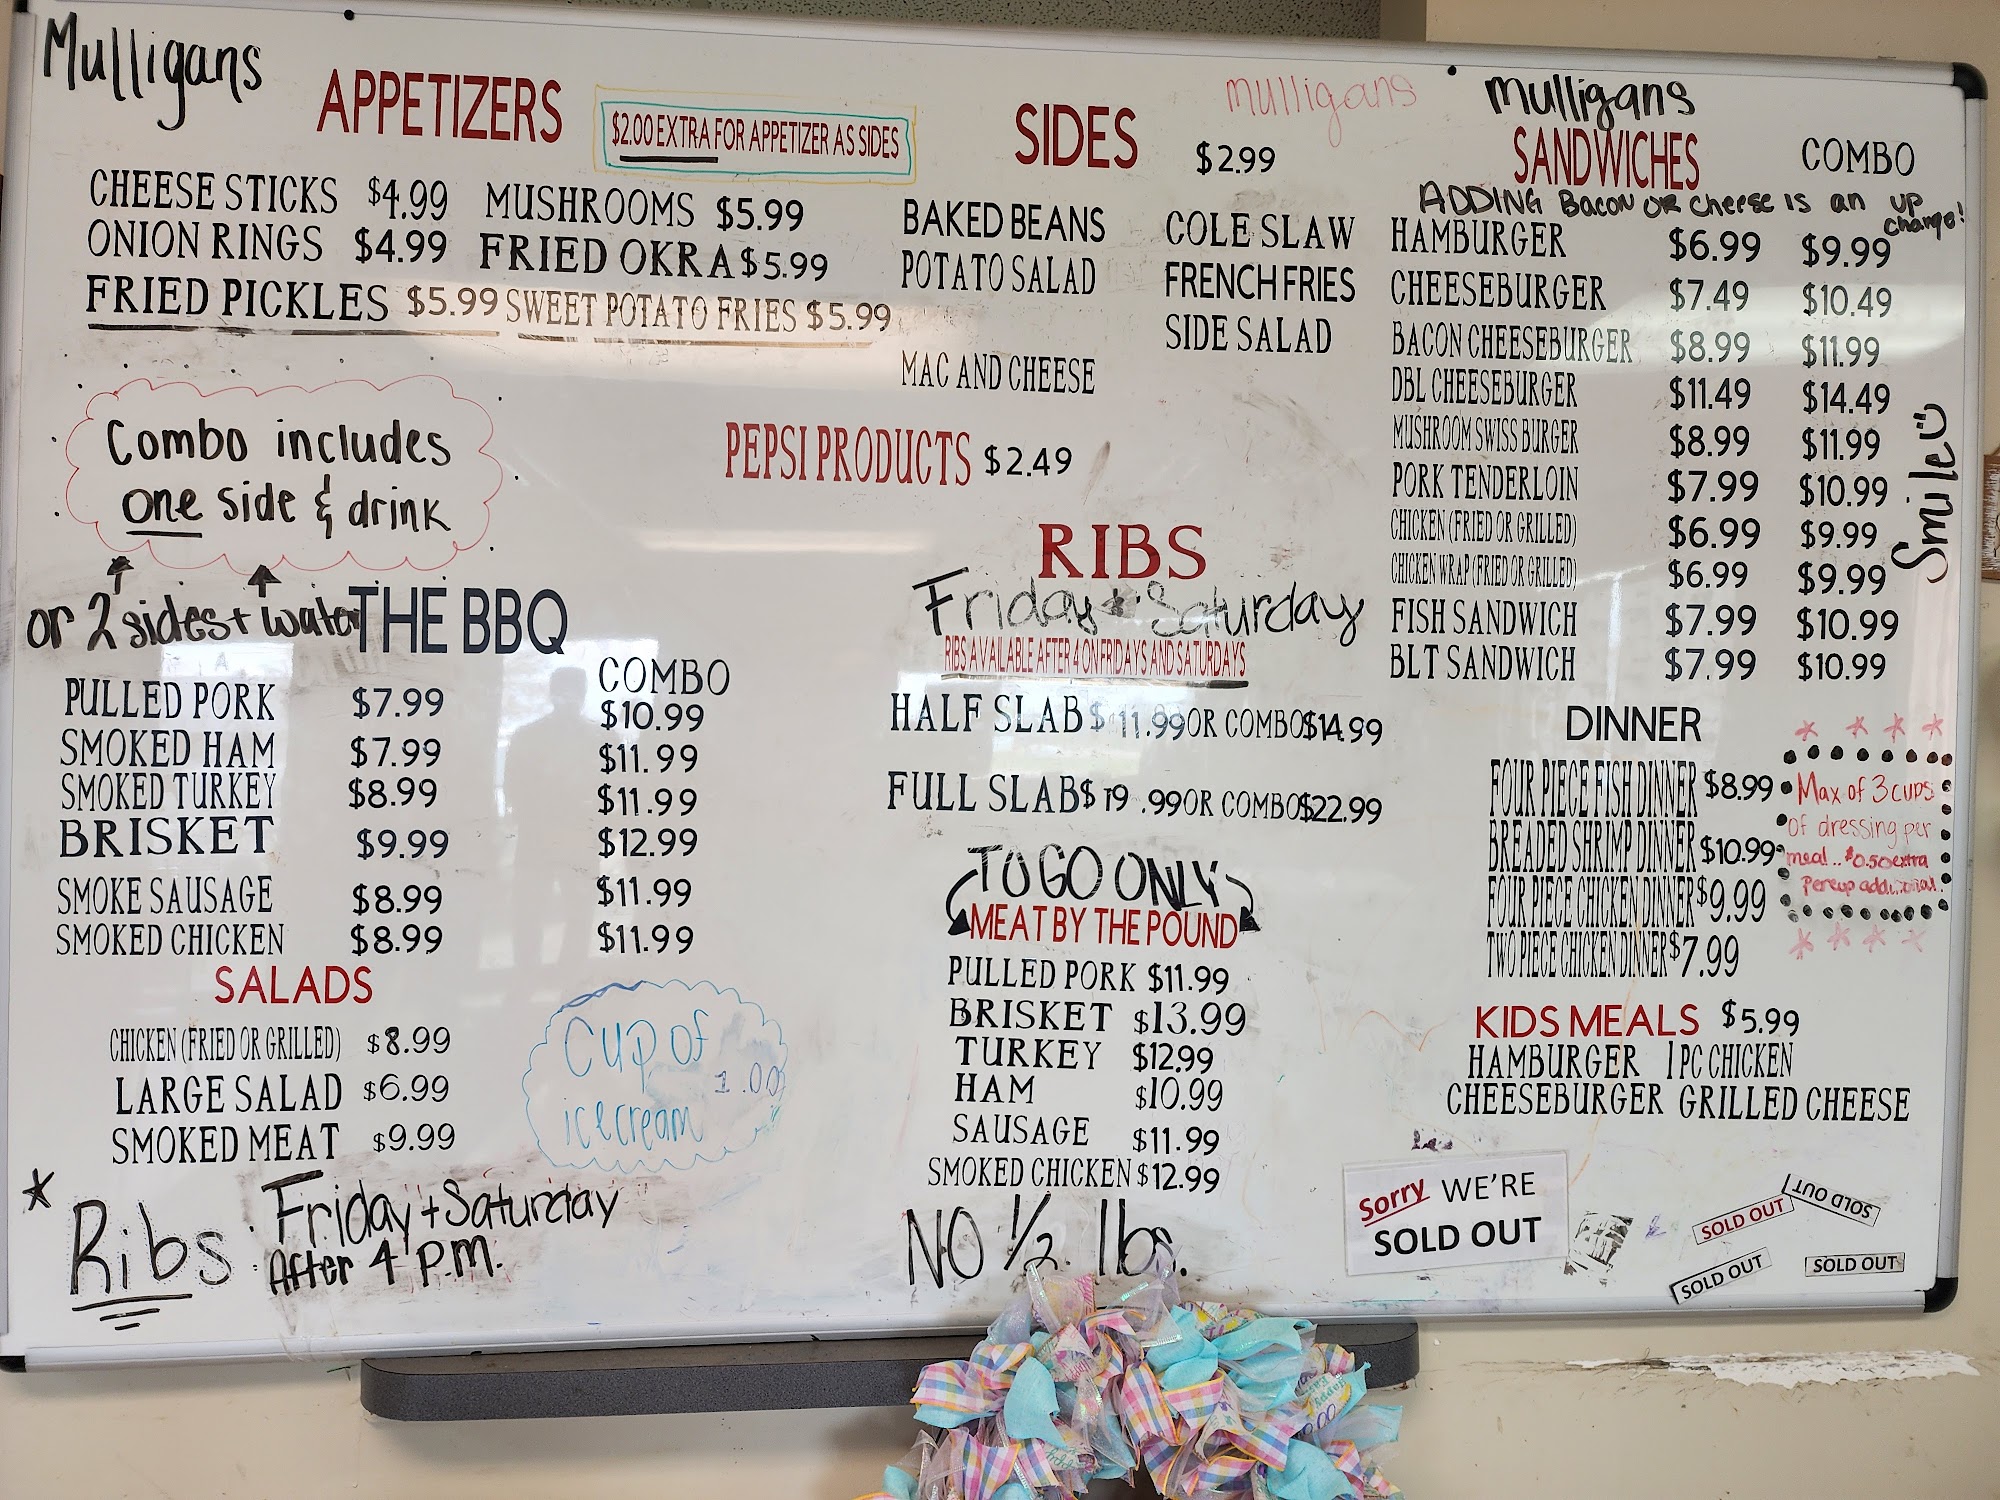 Mulligans
APPETIZERS
$2.00 EXTRA FOR APPETIZER AS SIDES
CHEESE STICKS $4.99 MUSHROOMS $5.99
ONION RINGS $4.99 FRIED OKRA $5.99
FRIED PICKLES $5.99 SWEET POTATO FRIES $5.99
Combo includes
one side & drink
or 2 sides + water
THE BBQ
COMBO
PULLED PORK $7.99 $10.99
SMOKED HAM $7.99 $11.99
SMOKED TURKEY $8.99 $11.99
BRISKET $9.99 $12.99
SMOKE SAUSAGE $8.99 $11.99
SMOKED CHICKEN $8.99 $11.99
SALADS
CHICKEN (FRIED OR GRILLED) $8.99
LARGE SALAD $6.99
SMOKED MEAT $9.99
Cup of
1.00
ice cream
* Ribs: Friday + Saturday
After 4 P.M.
mulligans
SIDES $2.99
BAKED BEANS COLE SLAW
POTATO SALAD FRENCH FRIES
SIDE SALAD
MAC AND CHEESE
PEPSI PRODUCTS $2.49
RIBS
Friday + Saturday
RIBS AVAILABLE AFTER 4 ON FRIDAYS AND SATURDAYS
HALF SLAB $11.99 OR COMBO $14.99
FULL SLAB $19.99 OR COMBO $22.99
TO GO ONLY
MEAT BY THE POUND
PULLED PORK $11.99
BRISKET $13.99
TURKEY $12.99
HAM $10.99
SAUSAGE $11.99
SMOKED CHICKEN $12.99
NO 1/2 lbs.
mulligans
SANDWICHES COMBO
ADDING Bacon OR cheese is an up
charge!
HAMBURGER $6.99 $9.99
CHEESEBURGER $7.49 $10.49
BACON CHEESEBURGER $8.99 $11.99
DBL CHEESEBURGER $11.49 $14.49
MUSHROOM SWISS BURGER $8.99 $11.99
PORK TENDERLOIN $7.99 $10.99
CHICKEN (FRIED OR GRILLED) $6.99 $9.99
CHICKEN WRAP (FRIED OR GRILLED) $6.99 $9.99
FISH SANDWICH $7.99 $10.99
BLT SANDWICH $7.99 $10.99
Smile
DINNER
FOUR PIECE FISH DINNER $8.99
BREADED SHRIMP DINNER $10.99
FOUR PIECE CHICKEN DINNER $9.99
TWO PIECE CHICKEN DINNER $7.99
Max of 3 cups
of dressing per
meal.. $0.50 extra
Per cup additional.
KIDS MEALS $5.99
HAMBURGER 1 PC CHICKEN
CHEESEBURGER GRILLED CHEESE
Sorry WE'RE
SOLD OUT
SOLD OUT
SOLD OUT
SOLD OUT
SOLD OUT